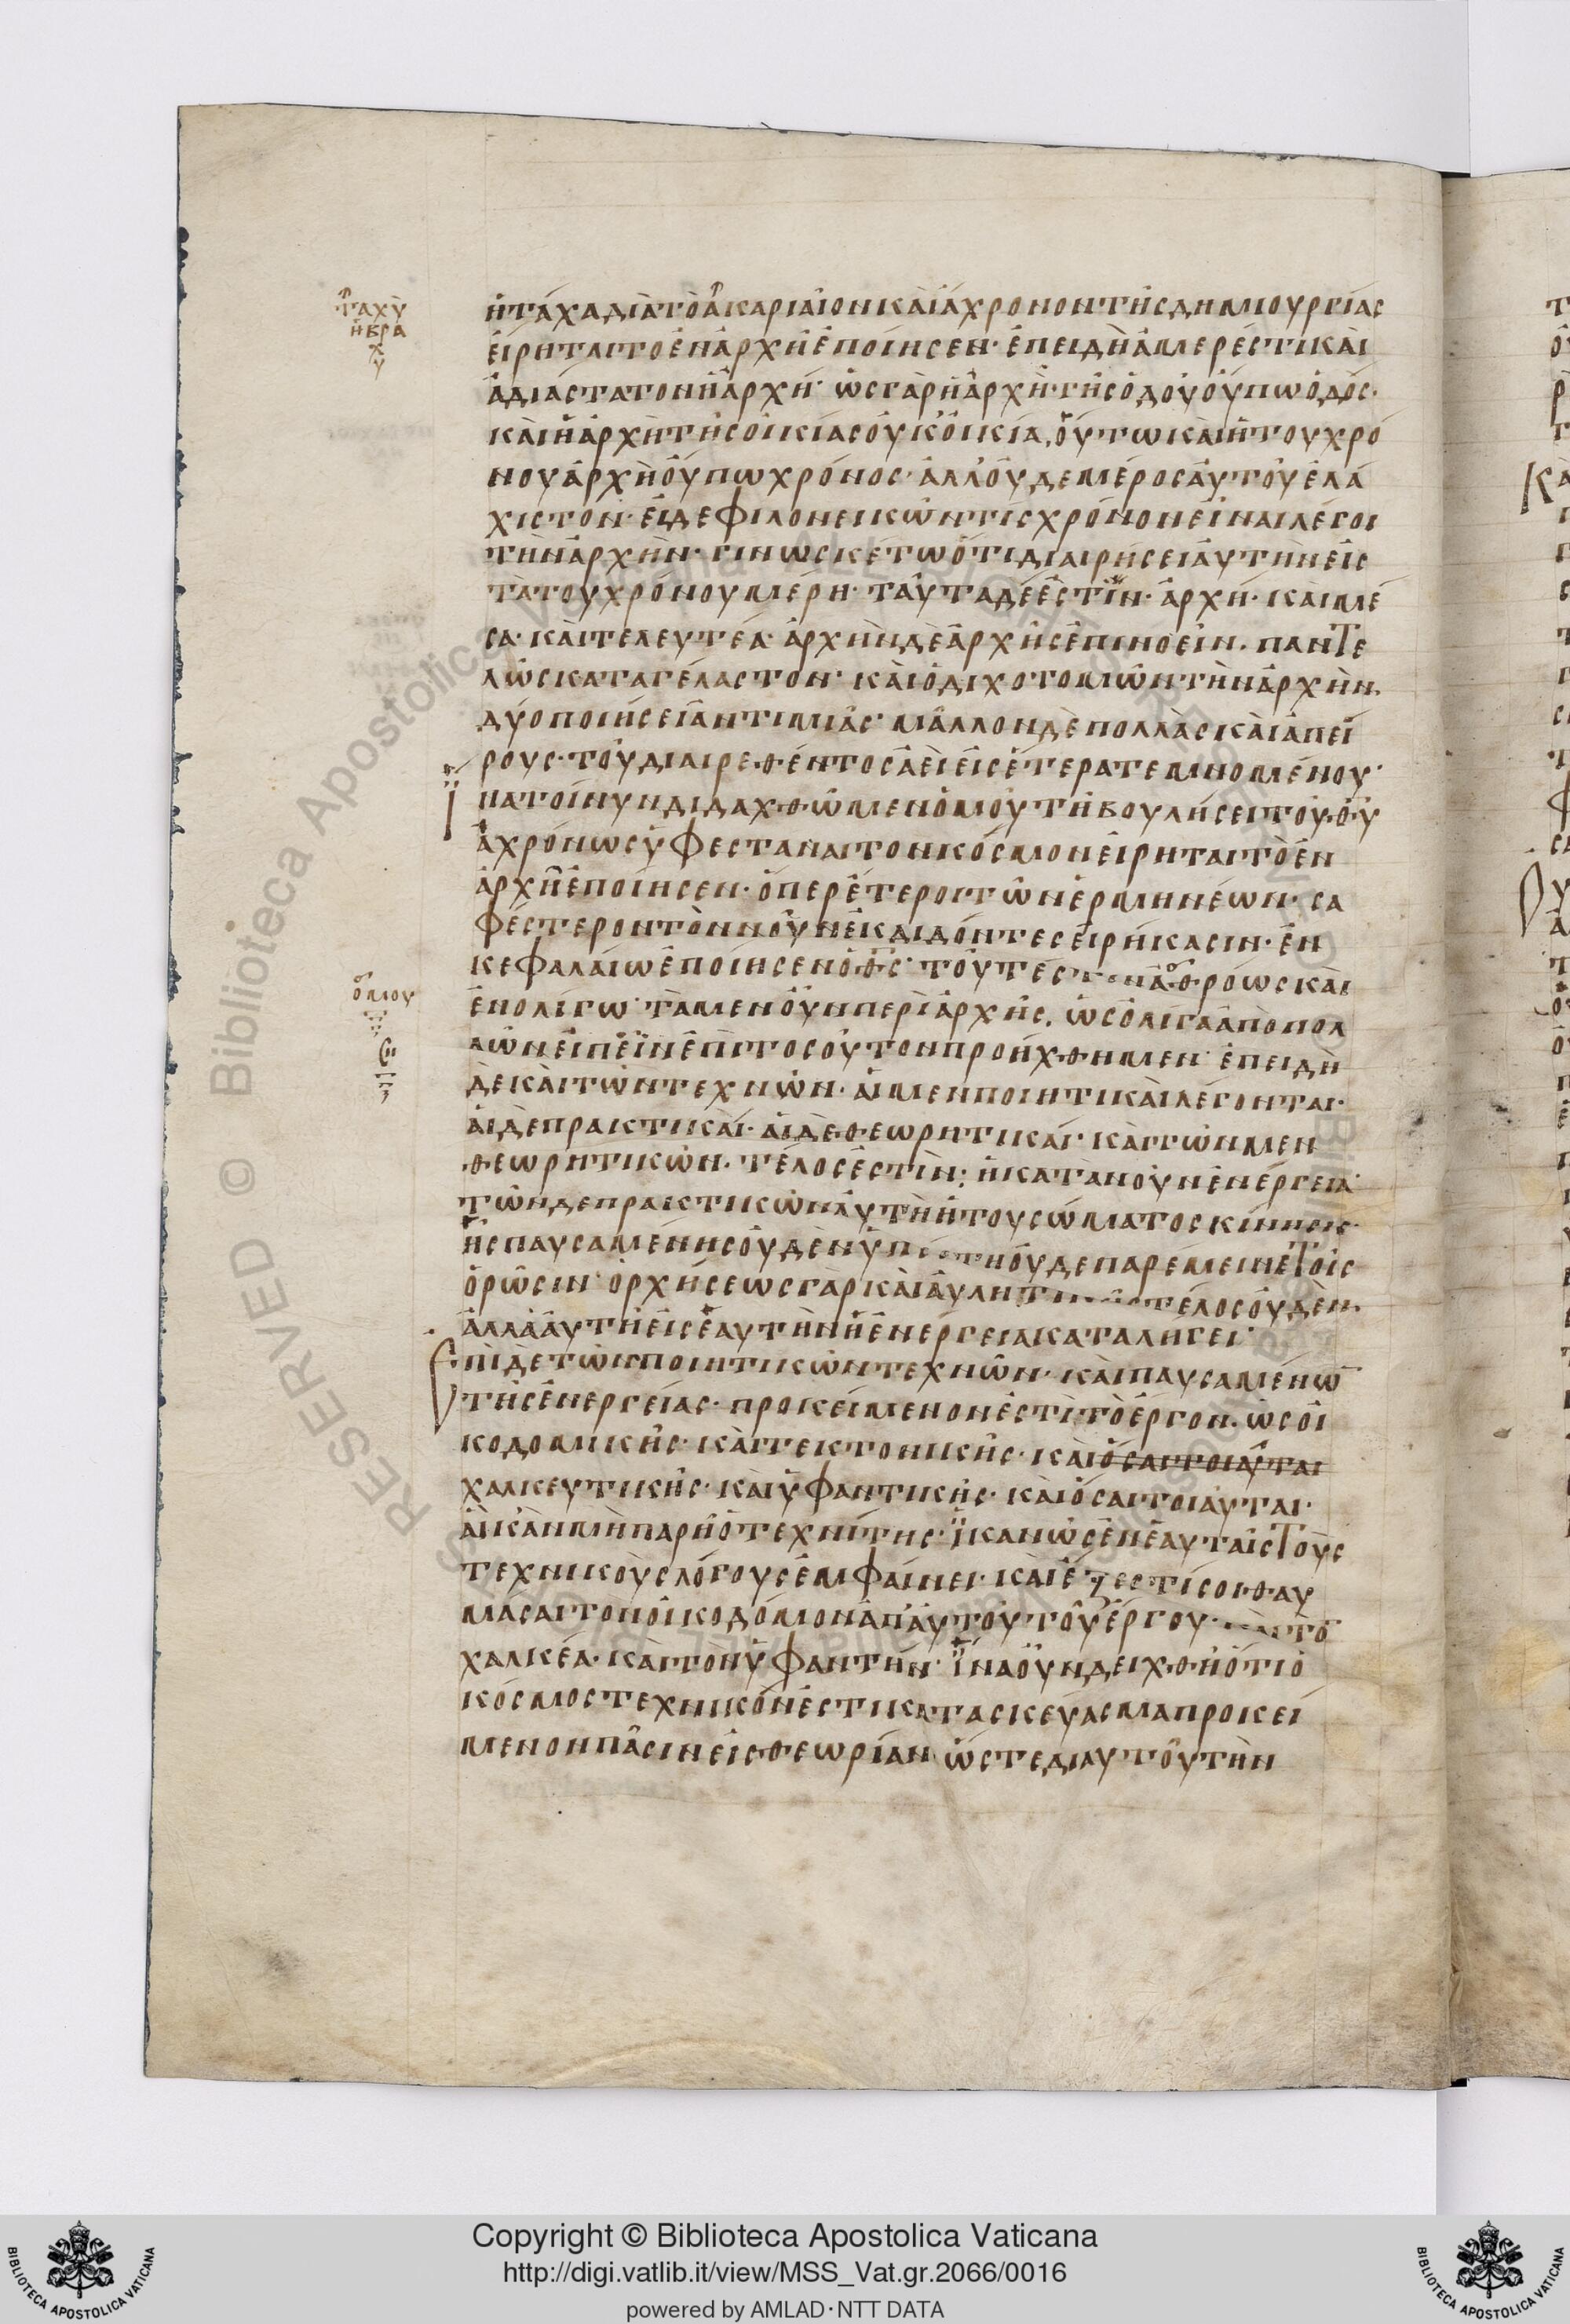 ταχὺ
ἢ βρα
χὺ
ἢ τάχα διὰ τὸ ἀκαριαῖον καὶ ἄχρονον τῆς δημιουργίας
εἴρηται τὸ ἐν ἀρχῆ ἐποίησεν· ἐπειδὴ ἀμερές τι καὶ
ἀδιάστατον ἡ ἀρχή· ὡς γὰρ ἡ ἀρχὴ τῆς ὁδοῦ οὔπω ὁδός·
καὶ ἡ ἀρχὴ τῆς οἰκίας οὐκ οἰκία, οὕτω καὶ ἡ τοῦ χρό
νου ἀρχὴ οὔπω χρόνος· ἀλλ' οὐδε μέρος αὐτοῦ ἐλά
χιστον· εἰ δε φιλονεικῶν τίς χρόνον εἶναι λέγοι
τὴν ἀρχὴν· γινωσκέτω ὅτι διαιρήσει αὐτὴν εἰς
τὰ τοῦ χρόνου μέρη· ταῦτα δέ ἐστιν· ἀρχὴ· καὶ μέ
σα· καὶ τελευτέα· ἀρχὴν δὲ ἀρχῆς ἐπινοεῖν· παντε
λῶς καταγέλαστον· καὶ ὁ διχοτομῶν τὴν ἀρχὴν·
δύο ποιήσει ἀντι μιᾶς· μᾶλλον δὲ πολλὰς καὶ ἀπεί
ρους· τοῦ διαιρεθέντος ἀεὶ εἰς ἕτερα τεμνομένου·
ἵνα τοίνυν διδαχθῶμεν ὁμοῦ τῆ βουλήσει τοῦ θυ
ἀχρόνως ὑφεστάναι τον κόσμον εἴρηται τὸ ἐν
ἀρχῆ ἐποίησεν· ὅπερ ἕτεροι τῶν ἑρμηνέων· σα
φέστερον τὸν νοῦν ἐκδιδόντες εἰρήκασιν· ἐν
κεφαλαίω ἐποίησεν ὁ θς· τουτέστιν ἀθρόως καὶ
ὁμου
ἐν ολίγω· τὰ μεν οὖν περὶ ἀρχῆς, ὡς ὀλίγα ἀπὸ πολ
λῶν εἰπεῖν ἐπὶ τοσοῦτον προήχθημεν· ἐπειδὴ
δὲ καὶ τῶν τεχνῶν· αἱ μεν ποιητικαὶ λέγονται·
αἱ δὲ πρακτικαί· αἱ δὲ θεωρητικαί· καὶ τῶν μεν
θεωρητικῶν· τέλος ἐστὶν· ἡ κατὰ νοῦν ἐνέργεια·
τῶν δε πρακτικῶν αὐτὴ ἡ τοῦ σώματος κίνησις·
ἧς παυσαμένης οὐδὲν ὑπέστη οὐδε παρέμεινε τοῖς
ὁρῶσιν· ὀρχήσεως γὰρ καὶ αὐλητικῆς τέλος οὐδέν·
ἀλλὰ αὐτὴ εἰς ἑαυτὴν ἡ ἐνέργεια καταλήγει·
Επὶ δὲ τῶν ποιητικῶν τεχνῶν· καὶ παυσαμένω
τῆς ἐνεργείας· προκείμενον ἐστὶ τὸ ἔργον· ὡς οἰ
κοδομικῆς· καὶ τεκτονικῆς· καὶ ὅσαι τοιαῦται
χαλκευτικῆς· καὶ ὑφαντικῆς· καὶ ὅσαι τοιαῦται·
αἳ κἂν μὴ παρῆ ὁ τεχνίτης· ἱκανῶς ἐν ἑαυταῖς τοὺς
τεχνικοὺς λόγους ἐμφαίνει· καὶ ἔξεστί σοι θαυ
μάσαι τον οἰκοδόμον ἀπ' αὐτοῦ τοῦ ἔργου· καὶ τὸ
χαλκέα· καὶ τον ὑφαντήν· ἵνα οὖν δειχθῆ ὅτι ὁ
κόσμος τεχνικόν ἐστι κατασκεύασμα προκεί
μενον πᾶσιν εἰς θεωρίαν· ὥστε δι αυτοῦ τὴν
Copyright © Biblioteca Apostolica Vaticana
http://digi.vatlib.it/view/MSS_Vat.gr.2066/0016
powered by AMLAD · NTT DATA